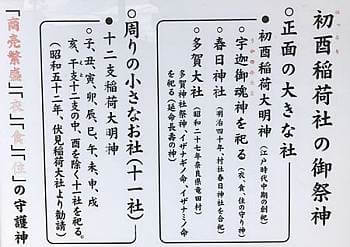 初酉稲荷社の御祭神
○正面の大きな社
●初酉稲荷大明神(江戸時代中期の創祀)
宇迦御魂神を祀る(衣、食、住の守り神)
●春日神社(明治四十年、村社春日神社を合祀)
●多賀大社(昭和二十七年奈良県竜田村)
多賀神社祭神、イザナギノ命、イザナミノ命
を祀る(延命長寿の神)
○周りの小さなお社(十一社)
●十二支稲荷大明神
子、丑、寅、卯、辰、巳、午、未、申、戌
亥、干支十二支の中、酉を除く十一社を祀る。
(昭和五十二年、伏見稲荷大社より勧請)
「商売繁盛」「衣」「食」「住」の守護神